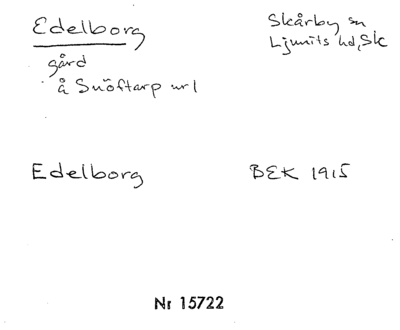 Edelborg
Skårby sn
Ljunits hd, Sk
gård
å Snöftarp nr 1
Edelborg
BEK 1915
Nr 15722